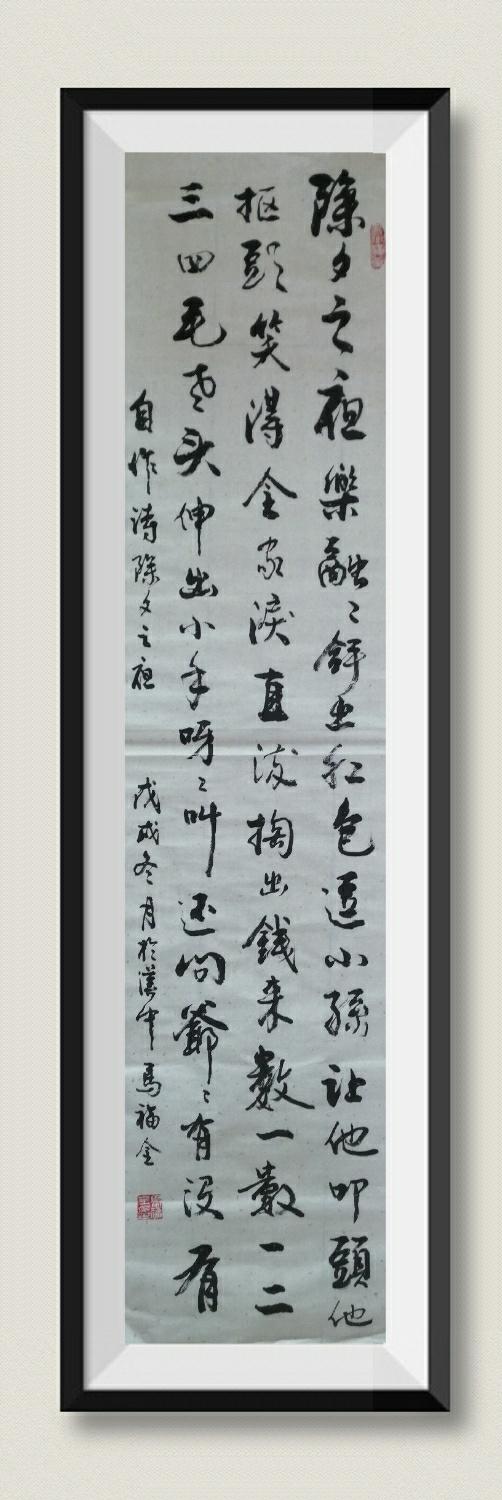 除夕之夜樂融々餅出紅包逗小孫让他叩頭他
抠頭笑得全家淚直流掏出錢来數一數一二
三四毛老头伸出小手呀々叫还问爺々有没有
自作诗除夕之夜 戊戌冬月於漢中馬福金